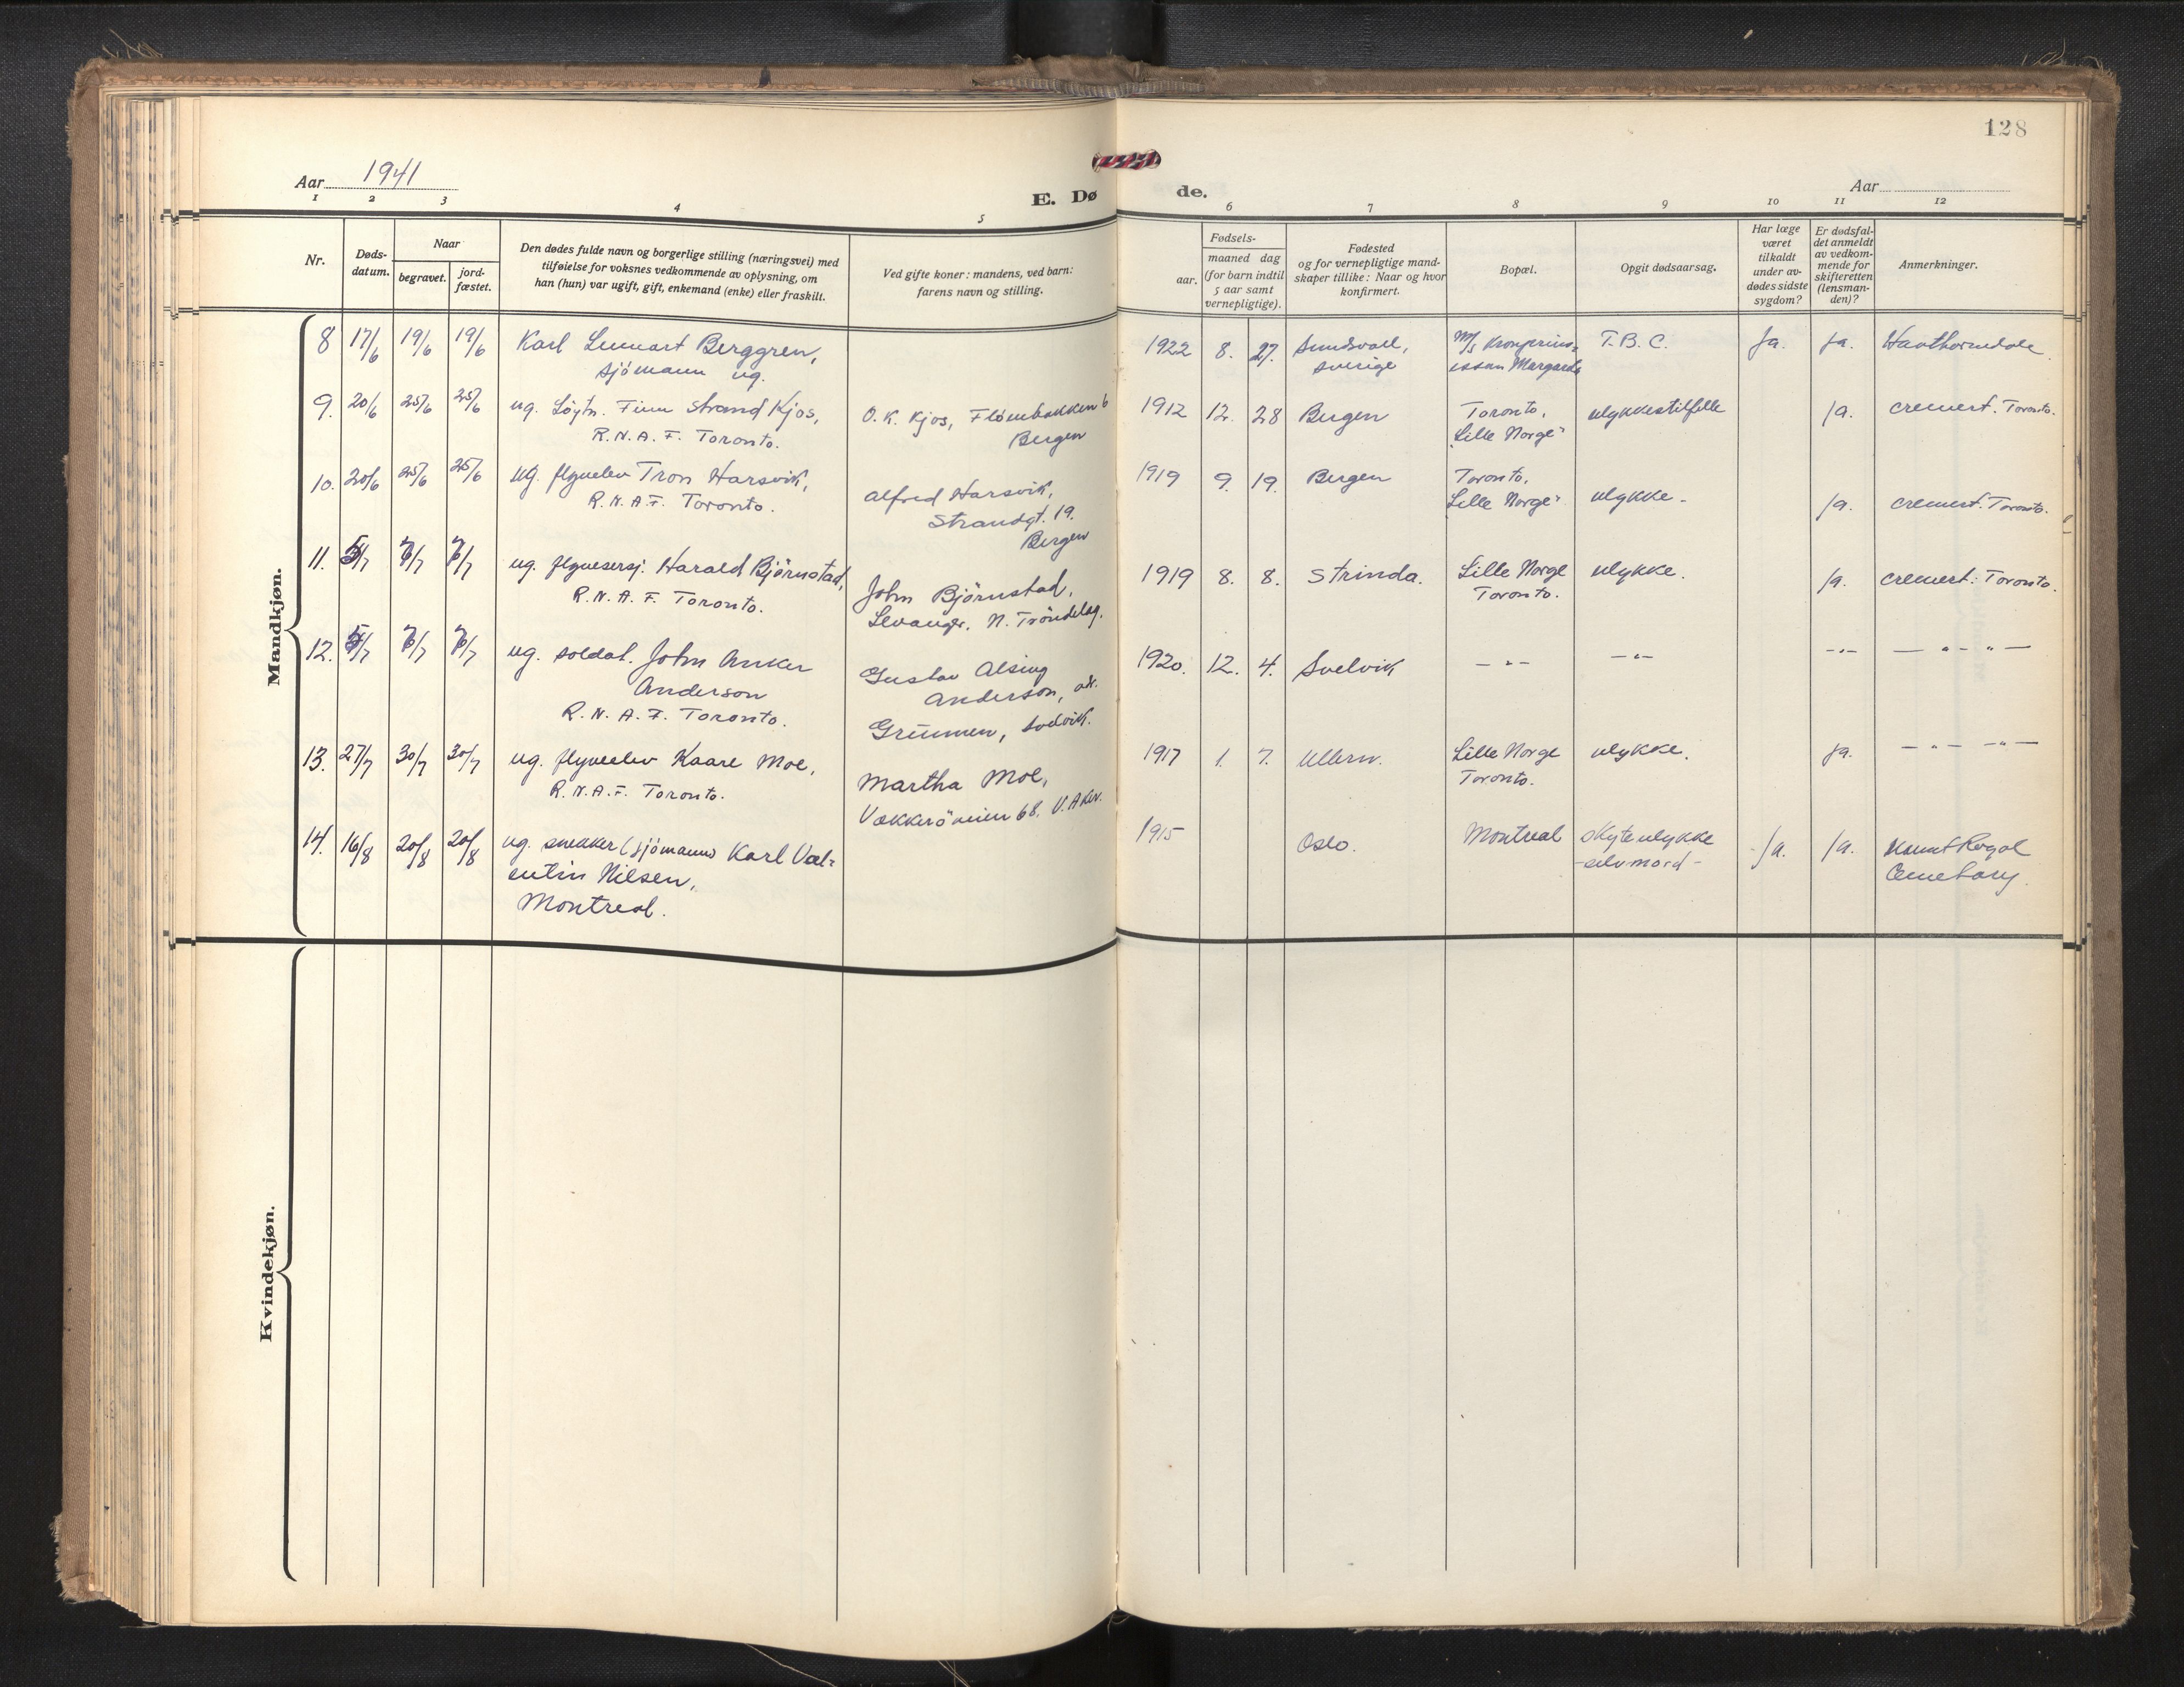 128
Aar 1941
E. Dø
de.
Aar
1 2 3 4 5 6 7 8 9 10 11 12
Nr.
Døds-
datum.
Naar
begravet.
jord-
fæstet.
Den dødes fulde navn og borgerlige stilling (næringsvei) med
tilføielse for voksnes vedkommende av oplysning, om
han (hun) var ugift, gift, enkemand (enke) eller fraskilt.
Ved gifte koner: mandens, ved barn:
farens navn og stilling.
Fødsels-
aar.
maaned dag
(for barn indtil
5 aar samt
vernepligtige).
Fødested
og for vernepligtige mand-
skaper tillike: Naar og hvor
konfirmert.
Bopæl.
Opgit dødsaarsag.
Har læge
været
tilkaldt
under av-
dødes sidste
sygdom?
Er dødsfal-
det anmeldt
av vedkom-
mende for
skifteretten
(lensman-
den)?
Anmerkninger.
Mandkjøn.
8 17/6 19/6 19/6 Karl Lennart Berggren, 1922 8. 27. Sundsvall, M/S Kronprins- T.B.C. Ja. Ja. Hawthornedale.
sjömann ug. Sverige essan Margareta
9. 20/6 25/6 25/6 ug. Löytn. Finn Strand Kjos, O. K. Kjos, Flöienbakken 6 1912 12. 28 Bergen Toronto, ulykkestilfelle Ja. cremert. Toronto.
R.N.A.F. Toronto. Bergen "Lille Norge"
10. 20/6 25/6 25/6 ug. flyveelev Tron Harsvik, Alfred Harsvik, 1919 9. 19. Bergen Toronto,
R.N.A.F. Toronto. Strandgt. 19. "Lille Norge" ulykke - Ja. cremert. Toronto.
Bergen
11. 5/7 7/7 7/7 ug. flyvesersj. Harald Björnstad, John Björnstad, 1919 8. 8. Strinda. Lille Norge ulykke. Ja. cremert. Toronto.
R.N.A.F. Toronto. Levanger, N. Tröndelag. Toronto.
12. 5/7 7/7 7/7 ug. soldat. John Anker Gustav Alsing 1920. 12. 4. Svelvik - " - - " - - " - - " - " -
Anderson Anderson, adr.
R.N.A.F. Toronto. Grunnen, Svelvik.
13. 27/7 30/7 30/7 ug. flyveelev Kaare Moe, Martha Moe, 1917 1. 7. Ullern. Lille Norge ulykke. Ja. - " - " -
R.N.A.F. Toronto. Vækkeröveien 68, V. Aker. Toronto.
14. 16/8 20/8 20/8 ug. snekker (sjömann) Karl Val- 1915 Oslo. Montreal skyteulykke Ja. Ja. Mount Royal
entin Nilsen, - selvmord - Cemetary.
Montreal.
Kvindekjøn.